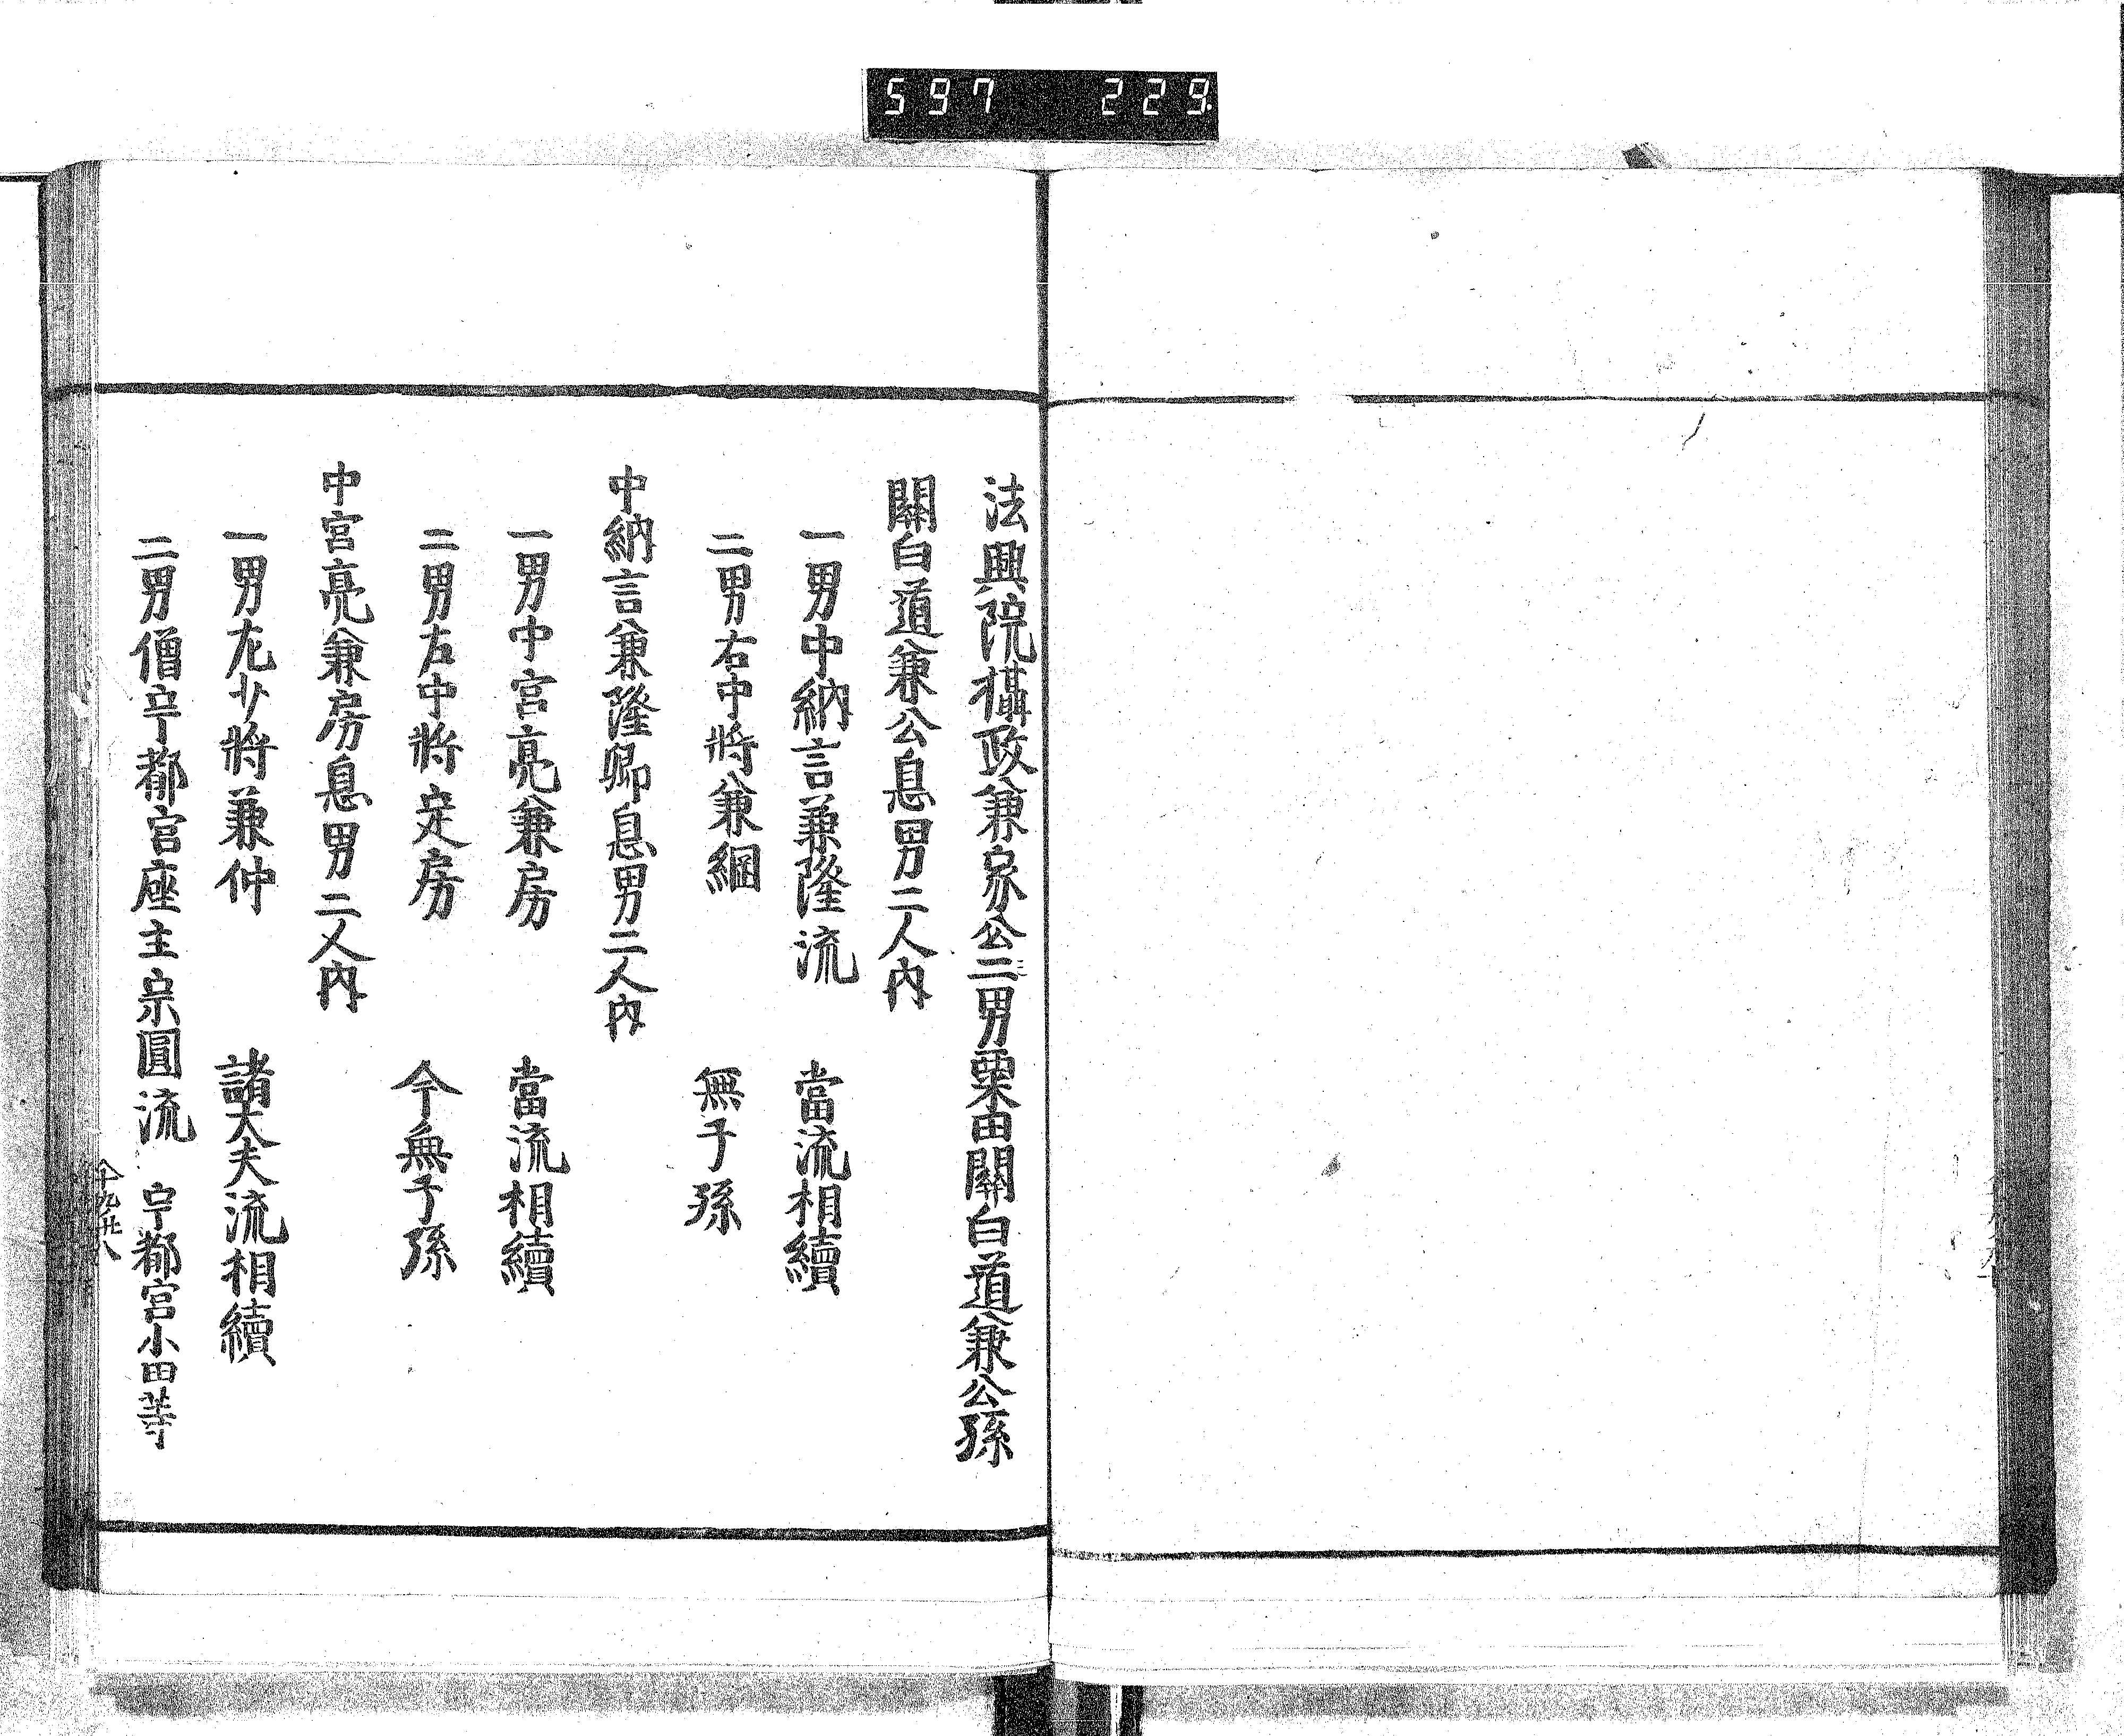 597 229
法興院攝政兼家公二男粟田關白道兼公孫
關白道兼公息男二人内
一男中納言兼隆流 當流相續
二男右中將兼綱 無子孫
中納言兼隆卿息男二人内
一男中宮亮兼房 當流相續
二男左中將定房 今無子孫
中宮亮兼房息男二人内
一男左少將兼仲 諸大夫流相續
二男僧宇都宮座主宗圓流 宇都宮小田等